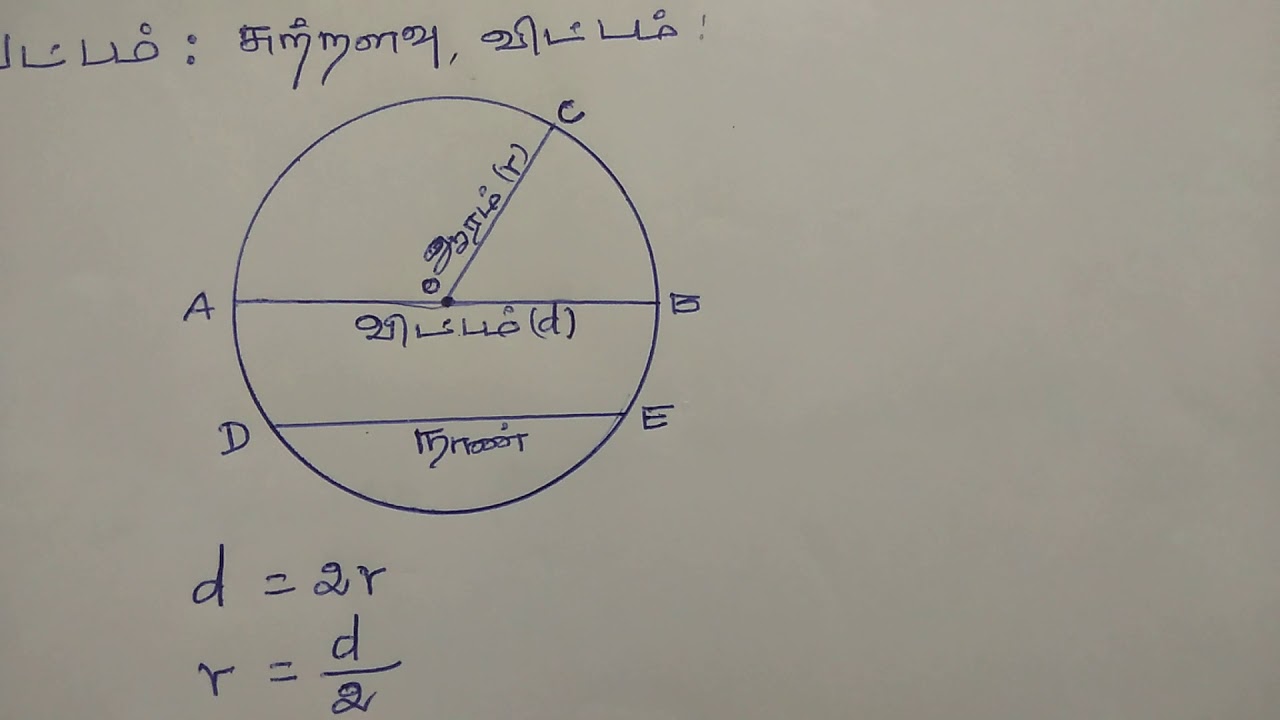 வட்டம் : சுற்றளவு, விட்டம் :
C
ஆரம் (r)
O
A
B
விட்டம் (d)
D
E
நாண்
d = 2r
r = d/2